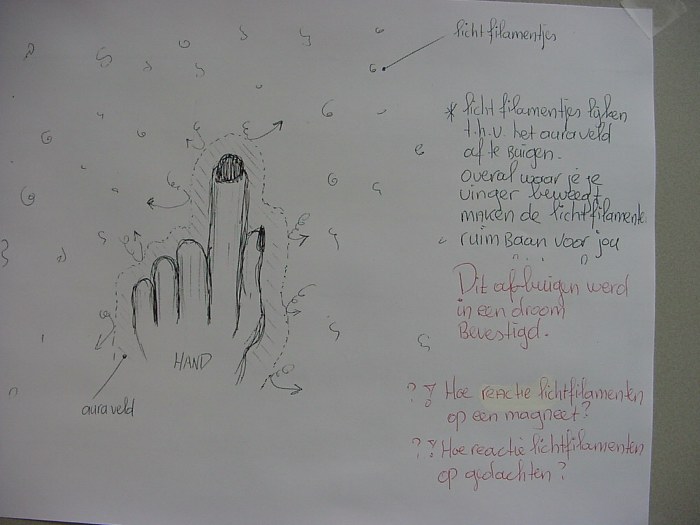 lichtfilamentjes
* licht filamentjes lijken
t.h.v. het auraveld
af te buigen.
overal waar je je
vinger beweegt
maken de lichtfilamente
ruim baan voor jou
Dit af-buigen werd
in een droom
Bevestigd.
?? Hoe reactie lichtfilamenten
op een magneet?
?? Hoe reactie lichtfilamenten
op gedachten?
HAND
auraveld